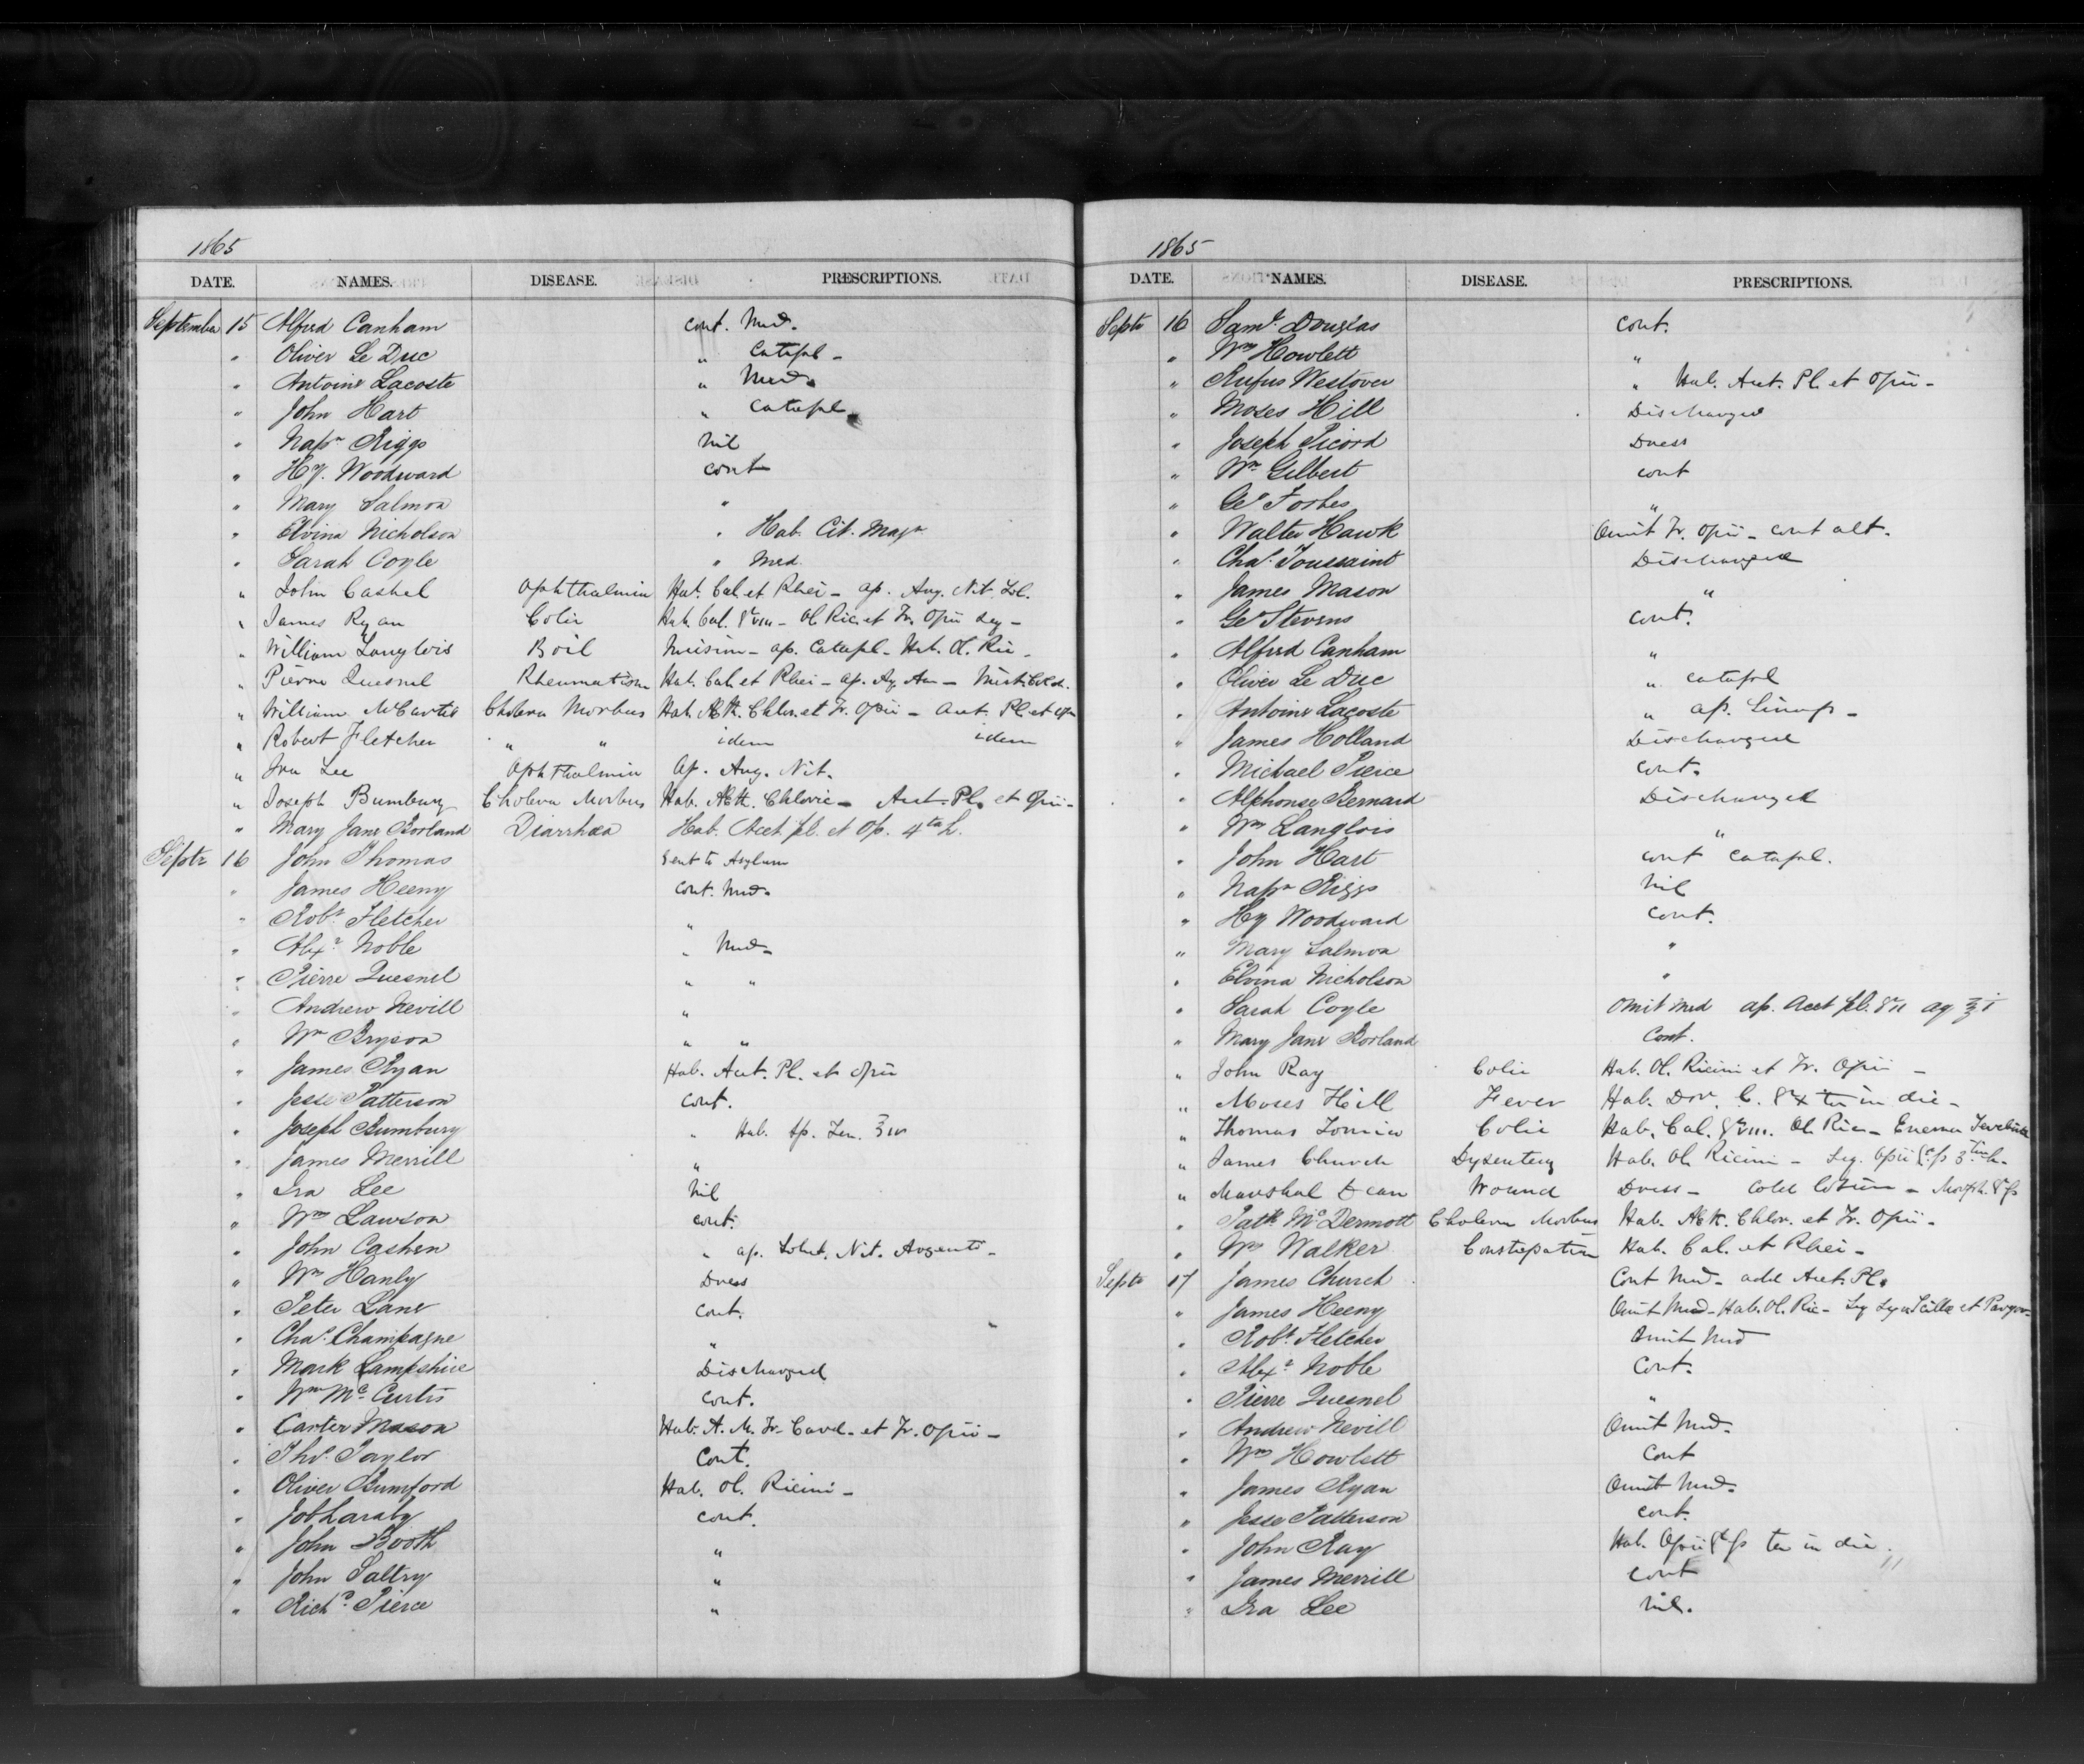 1865
DATE. NAMES. DISEASE. PRESCRIPTIONS.
September 15 Alfred Canham cont. Med.
" Oliver Le Duc " Catapl -
" Antoine Lacoste " Med.
" John Hart " Catapl.
" Napn Riggs nil
" Hy. Woodward cont
" Mary Salmon "
" Elvina Nicholson " Hab. Cit. Magn
" Sarah Coyle " Med.
" John Cashel Ophthalmia Hab. Cal. et Rhei - ap. Arg. Nit. Sol.
" James Ryan Colic Hab. Cal. gr viii - Ol Ric. et Tr. Opii Seq -
" William Langlois Boil Incision - ap. Catapl - Hab. Ol. Ric -
" Pierre Quesnel Rheumatism Hab. Cal. et Rhei - ap. Aq. Am -
" William McCurtis Cholera Morbus Hab. Æth. Chlor. et Tr. Opii - Acet. Pl. et Op
" Robert Fletcher " " idem idem
" Ira Lee Ophthalmia Ap. Arg. Nit.
" Joseph Bumbury Cholera Morbus Hab. Æth. Chloric - Acet. Pl. et Opii -
" Mary Jane Borland Diarrhœa Hab. Acet pl. et Op. 4ta h.
Septr 16 John Thomas Sent to Asylum
" James Heeny cont. Med.
" Robt Fletcher "
" Alexr Noble " Med -
" Pierre Quesnel " "
" Andrew Nevill "
" Wm Bryson " "
" James Ryan Hab. Acet. Pl. et Opii
" Jesse Patterson cont.
" Joseph Bumbury " Hab. Sp. Ter. ʒ iv
" James Merrill "
" Ira Lee Nil
" Wm Lawson cont.
" John Cashen " ap. Solut. Nit. Argenti -
" Wm Hanly Dress
" Peter Lane cont.
" Chas. Champagne "
" Mark Lampshire Discharged
" Wm McCurtis cont.
" Carter Mason Hab. A. M. Tr. Card. et Tr. Opii -
" Thos. Taylor Cont.
" Oliver Bumford Hab. Ol. Ricini -
" Job Laraby cont.
" John Booth "
" John Saltry "
" Richd Pierce "
1865
DATE. NAMES. DISEASE. PRESCRIPTIONS.
Septr 16 Saml Douglas cont.
" Wm Howlett "
" Rufus Westover " Hab. Acet. Pl. et Opii -
" Moses Hill Discharged
" Joseph Picord Dress
" Wm Gilbert cont
" Geo Forbes "
" Walter Hawk Omit Tr. Opii - cont alt.
" Chas. Toussaint Discharged
" James Mason "
" Geo Stevens cont.
" Alfred Canham "
" Oliver Le Duc " catapl
" Antoine Lacoste " ap. Sinap -
" James Holland Discharged
" Michael Pierce cont.
" Alphonse Bernard Discharged
" Wm Langlois "
" John Hart cont Catapl.
" Napn Riggs Nil
" Hy Woodward cont.
" Mary Salmon "
" Elvina Nicholson "
" Sarah Coyle Omit med ap. Acet pl. gr ii aq ℥ i
" Mary Jane Borland Cont.
" John Ray Colic Hab. Ol. Ricini et Tr. Opii -
" Moses Hill Fever Hab. Dov. C. gr x ter in die -
" Thomas Hab. Cal. gr viii. Ol. Ric - Enema
" James Church Dysentery Hab. Ol. Ricini - Seq. Opii gr fs 3tia h.
" Marshal Dean Wound Dress - Cold lotion - Morph. gr fs
" Patk McDermott Cholera Morbus Hab. Æth. Chlor. et Tr. Opii -
" Wm Walker Constipation Hab. Cal. et Rhei -
Septr 17 James Church Cont Med - add Acet. Pl.
" James Heeny Omit Med - Hab. Ol. Ric - Seq Syr Scillæ et Paregor -
" Robt Fletcher Omit Med
" Alexr Noble Cont.
" Pierre Quesnel "
" Andrew Nevill Omit Med -
" Wm Howlett Cont
" James Ryan Omit Med -
" Jesse Patterson cont.
" John Ray Hab. Opii gr fs ter in die.
" James Merrill cont
" Ira Lee Nil.